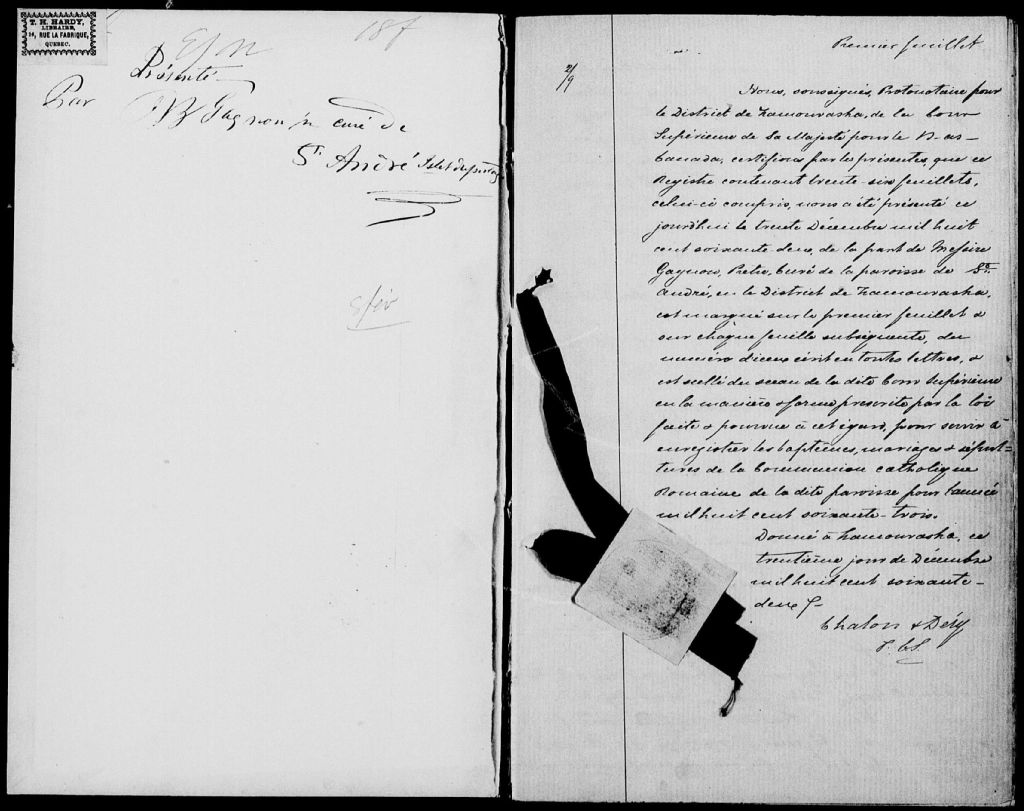 T. H. HARDY,
LIBRAIRE,
RUE LA FABRIQUE,
QUEBEC.
Présenté
Par
Gagnon ptr curé de
St. André
Premier feuillet
2/9
Nous, soussignés, Protonotaire pour
le District de Kamouraska, de la Cour
Supérieure de Sa Majesté pour le Bas-
Canada, certifions par les présentes, que ce
Registre contenant trente-six feuillets,
celui-ci compris, nous a été présenté ce
jourd'hui le trente Décembre mil huit
cent soixante deux, de la part de Messire
Gagnon, Prêtre, Curé de la paroisse de St.
André, en le District de Kamouraska,
est marqué sur le premier feuillet &
sur chaque feuille subséquente, du
numéro d'iceux écrit en toutes lettres, &
est scellé du sceau de la dite Cour Supérieure
en la manière & forme prescrite par la loi
faite & pourvue à cet égard, pour servir à
enregistrer les baptêmes, mariages & sépul-
tures de la Communion Catholique
Romaine de la dite paroisse pour l'année
mil huit cent soixante-trois.
Donné à Kamouraska, ce
trentième jour de Décembre
mil huit cent soixante-
deux
Chalou & Déry
P. C. S.